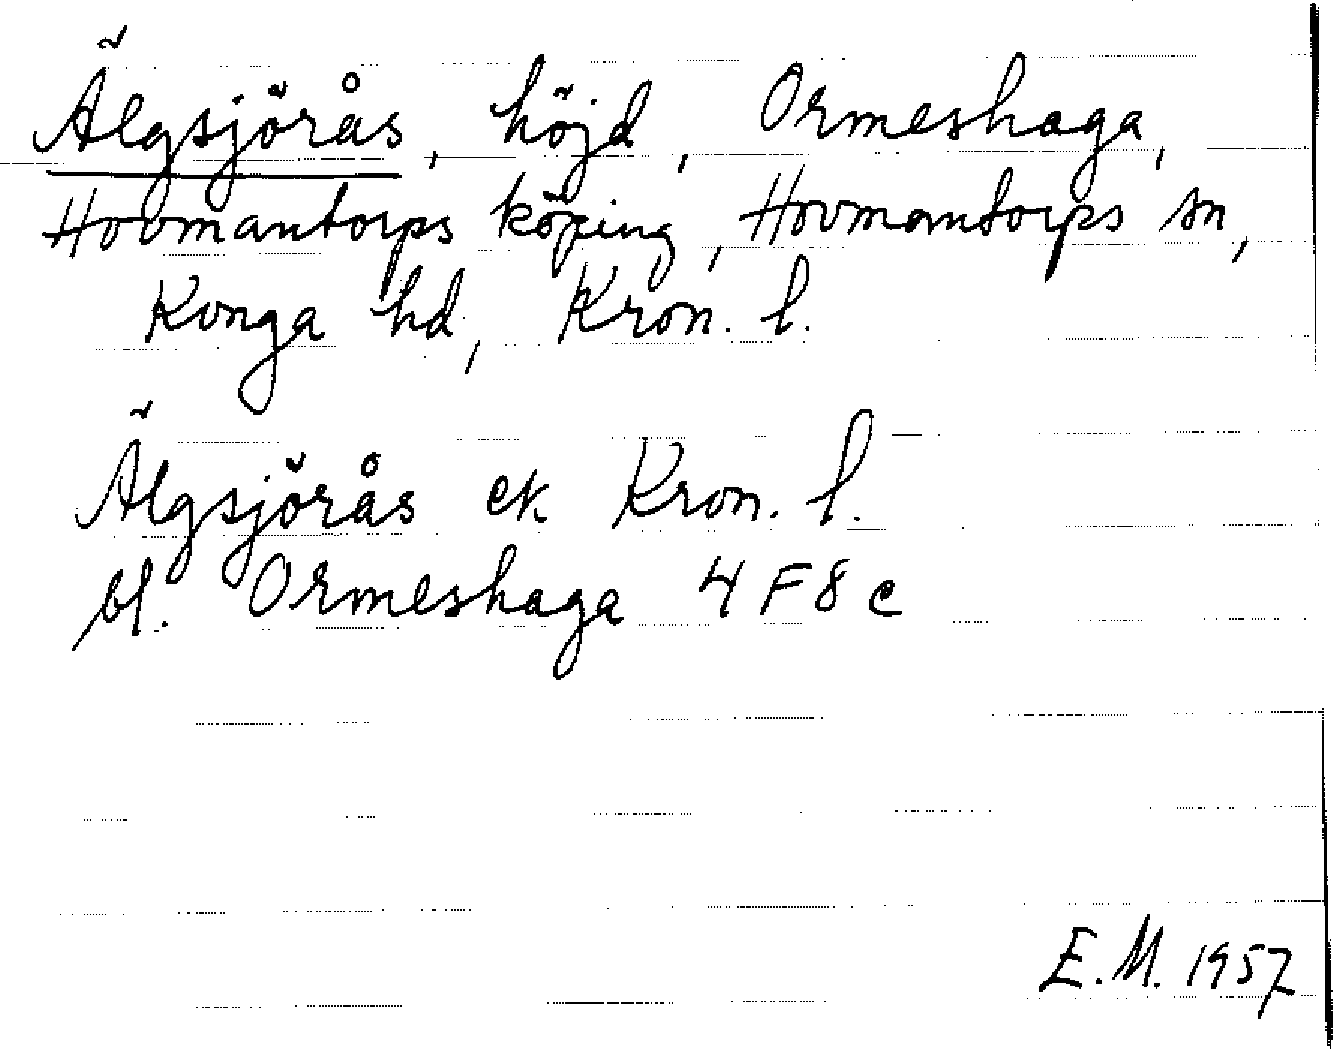 Älgsjörås, höjd, Ormeshaga,
Hovmantorps köping, Hovmantorps sn,
Konga hd, Kron. l.
Älgsjörås ek Kron. l.
bl. Ormeshaga 4 F 8 c
E.M. 1957